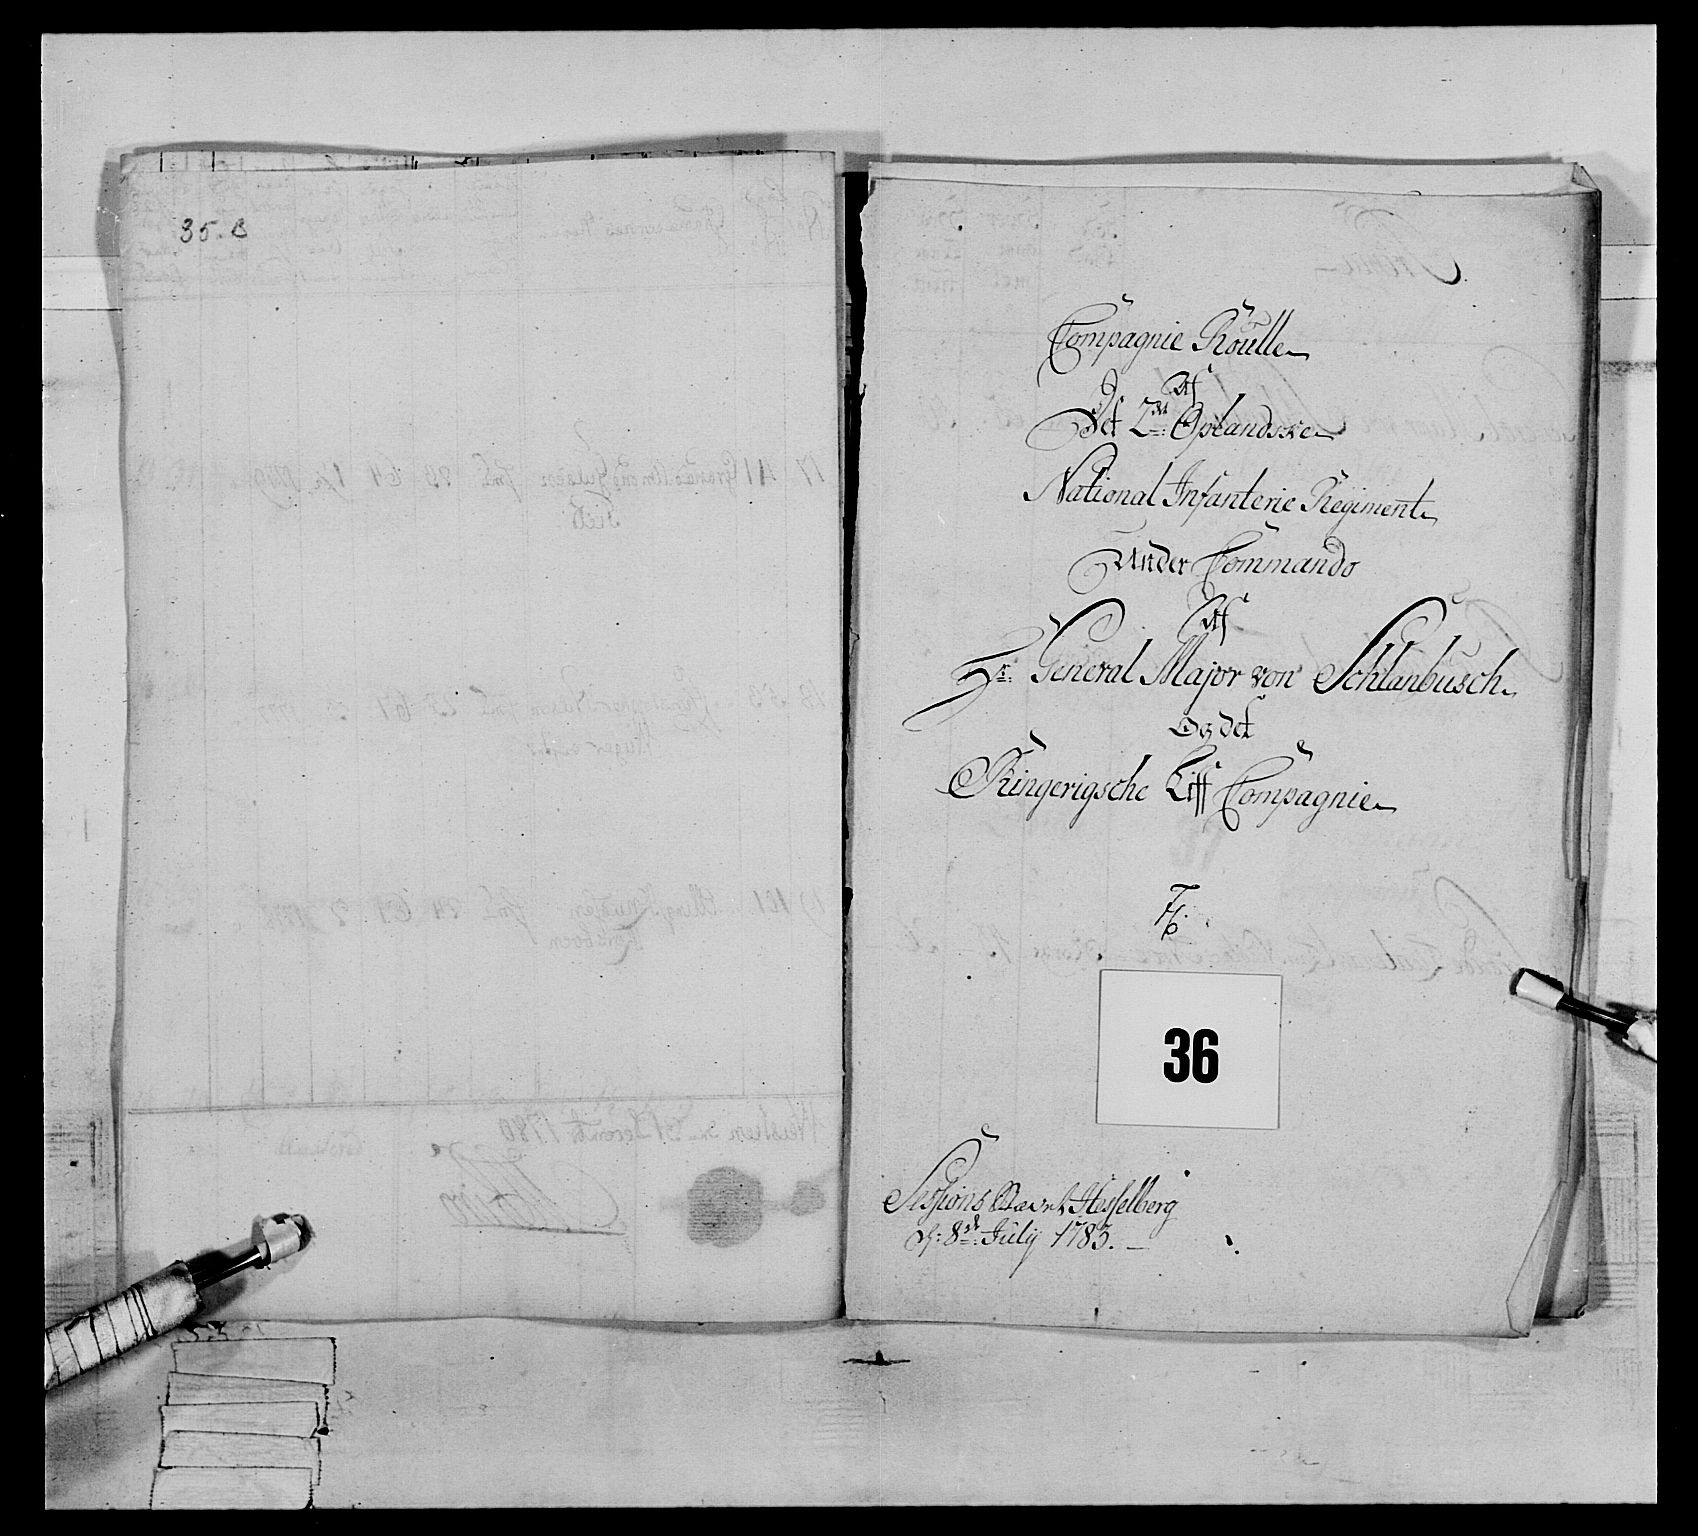 35. B
Compagnie Roulle
Af
Det 2det Oplandske
National Infanterie Regiment
Under Commando
Af
Hr: General Major von Schlanbusch
Og det
Ringerigsche Liff Compagnie
36
Sessions Qvart Hesselberg
d: 8de July 1783.